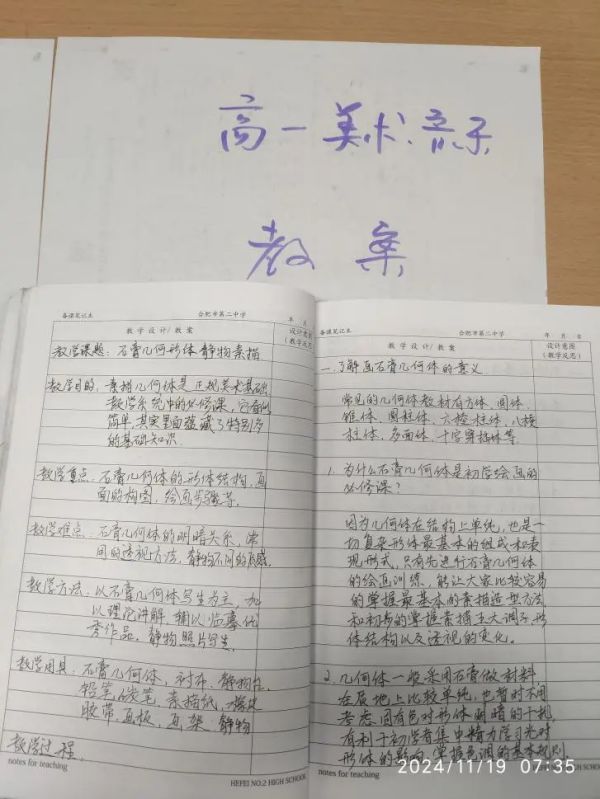 高一美术.音乐
教案
备课笔记本
合肥市第二中学
年 月
教学设计/教案
设计意图
(教学反思)
教学课题: 石膏几何形体静物素描
教学目的: 素描几何体是正规美术基础
教学系统中的必修课, 它看似
简单, 其实里面蕴藏了特别多
的基础知识
教学重点: 石膏几何体的形体结构, 画
面的构图, 绘画步骤等.
教学难点: 石膏几何体的明暗关系, 常
用的透视方法, 静物不同的质感.
教学方法: 以石膏几何体写生为主, 加
以理论讲解, 辅以临摹优
秀作品, 静物照片写生.
教学用具: 石膏几何体, 衬布, 静物台,
铅笔 炭笔 素描纸, 橡皮
胶带, 画板, 画架, 静物
教学过程.
notes for teaching
HEFEI NO.2 HIGH SCHOOL
备课笔记本
合肥市第二中学
年 月 日
教学设计/教案
设计意图
(教学反思)
一. 了解画石膏几何体的意义
常见的几何体教材有方体、圆体、
锥体、圆柱体、六棱柱体、八棱
柱体、多面体、十字穿插体等.
1. 为什么石膏几何体是初学绘画的
必修课?
因为几何体在结构上单纯, 也是一
切复杂形体最基本的组成和表
现形式, 只有先进行石膏几何体
的绘画训练, 能让大家比较容易
的掌握最基本的素描造型方法
和初步的掌握素描五大调子, 形
体结构以及透视的变化.
2. 几何体一般采用石膏做材料,
在质地上比较单纯, 也暂时不用
考虑固有色对形体明暗的干扰,
有利于初学者集中精力学习光对
形体的影响, 掌握色调的基本规则
notes for teaching
HEFEI NO.2 HIGH SCHOOL
2024/11/19 07:35